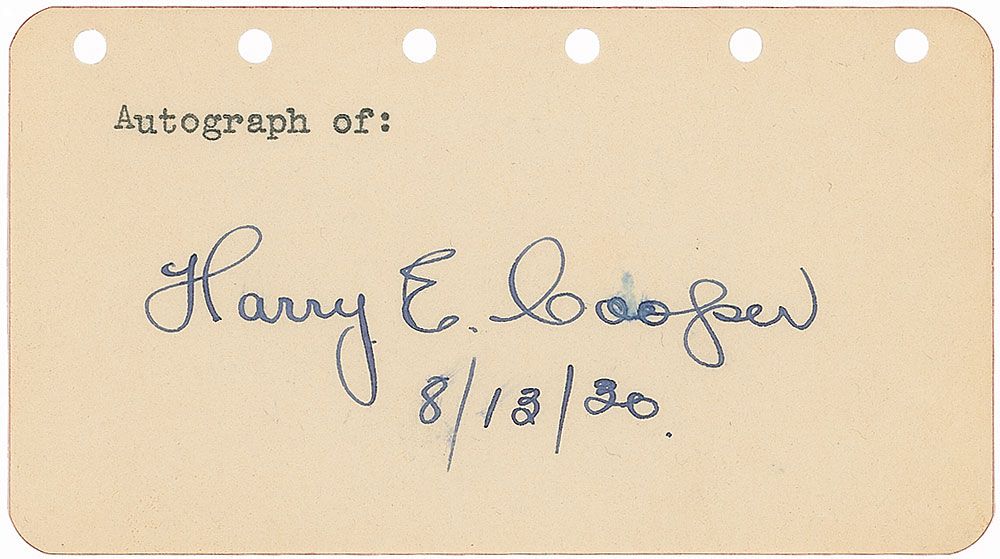 Autograph of:
Harry E. Cooper
8/13/30.